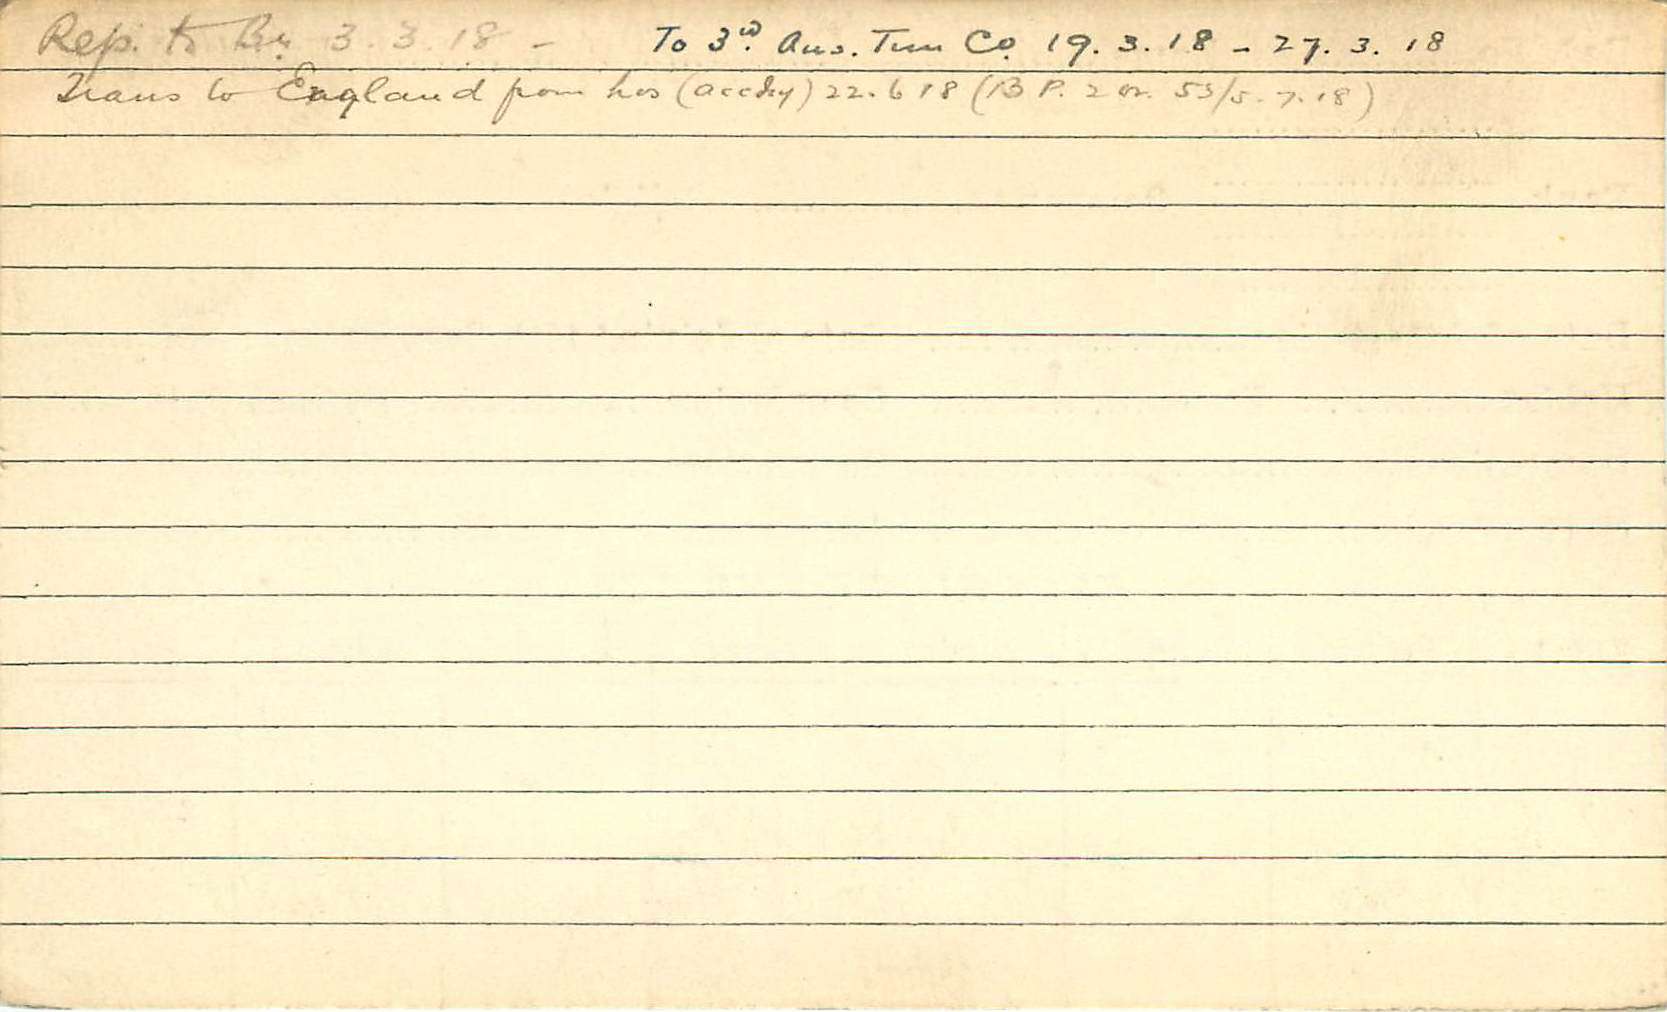 Rep. to Bn. 3. 3. 18 - To 3rd Aus. Tun Co. 19. 3. 18 - 27. 3. 18
Trans to England from hos (accdy) 22. 6 18 (B P. 2 or. 53/5. 7. 18)